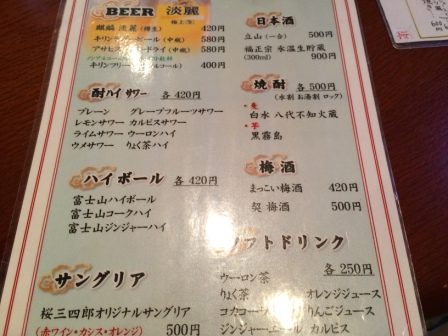 BEER 淡麗 極上〈生〉
麒麟 淡麗 (樽生) 420円
キリンラガービール (中瓶) 580円
アサヒスーパードライ (中瓶) 580円
ノンアルコールビールテイスト飲料
キリンフリー 400円
日本酒
立山 (一合) 500円
福正宗 氷温生貯蔵
(300ml) 900円
酎ハイ サワー 各 420円
プレーン グレープフルーツサワー
レモンサワー カルピスサワー
ライムサワー ウーロンハイ
ウメサワー りょく茶ハイ
焼酎 各 500円
(水割 お湯割 ロック)
・麦
白水 八代不知火蔵
・芋
黒霧島
ハイボール 各 420円
富士山ハイボール
富士山コークハイ
富士山ジンジャーハイ
梅酒
まっこい梅酒 420円
契 梅酒 500円
ソフトドリンク
各 250円
ウーロン茶
りょく茶 オレンジジュース
コカコーラ りんごジュース
ジンジャーエール カルピス
サングリア
桜三四郎オリジナルサングリア
(赤ワイン・カシス・オレンジ) 500円